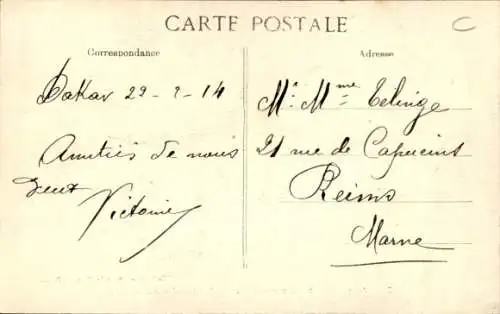 CARTE POSTALE
Correspondance
Dakar 29-2-14
Amitiés de nous
deux
Victoire
Adresse
Mr Mme
21 rue de Capucins
Reims
Marne